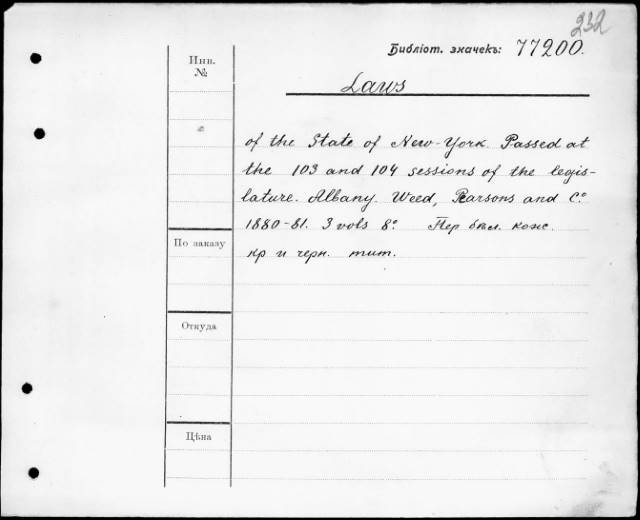 232
Библіот. значекъ: 77200.
Инв.
№
Laws
of the State of New-York. Passed at
the 103 and 104 sessions of the legis-
lature. Albany. Weed, Parsons and Cº
1880-81. 3 vols 8º Пер бѣл. кож.
кр и черн. тит.
По заказу
Откуда
Цѣна